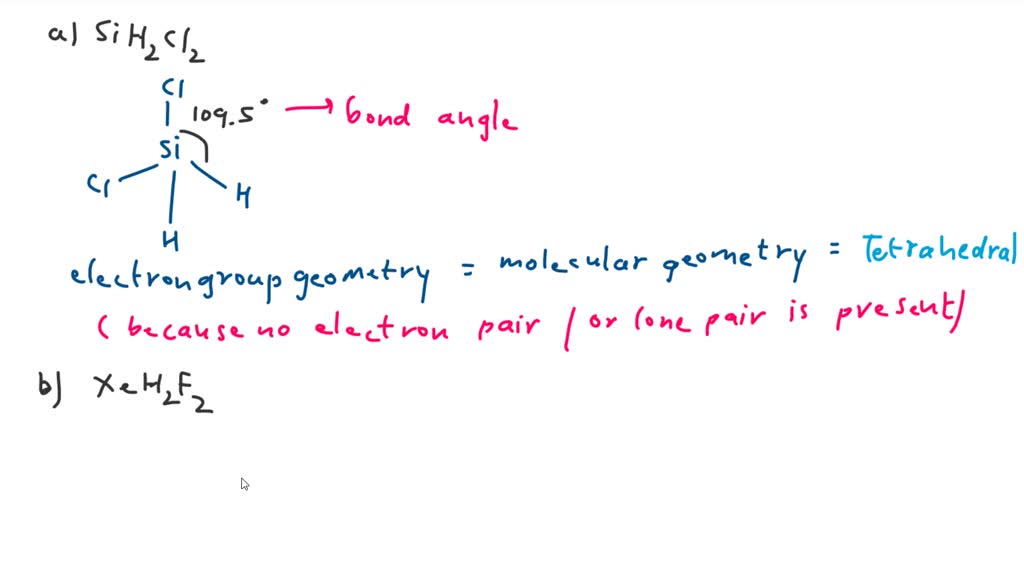 a) SiH₂Cl₂
Cl
109.5° → bond angle
Si
Cl
H
H
electron group geometry = molecular geometry = Tetrahedral
( because no electron pair / or lone pair is present)
b) XeH₂F₂